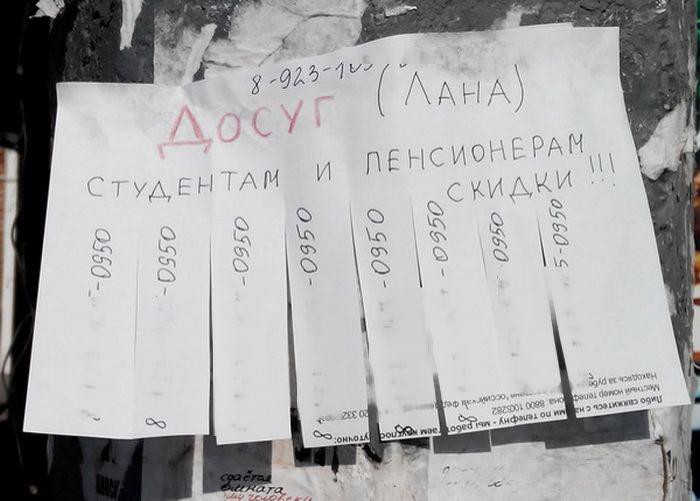 8-923-1
(ЛАНА)
ДОСУГ
СТУДЕНТАМ И ПЕНСИОНЕРАМ
СКИДКИ!!!
-0950
-0950
-0950
-0950
-0950
-0950
-0950
5-0950
8
8
8
8
Либо свяжитесь с нами по телефну - мы работаем
Местный номер телефона: 8800 1003282
Находясь за
20 332
сдаётся